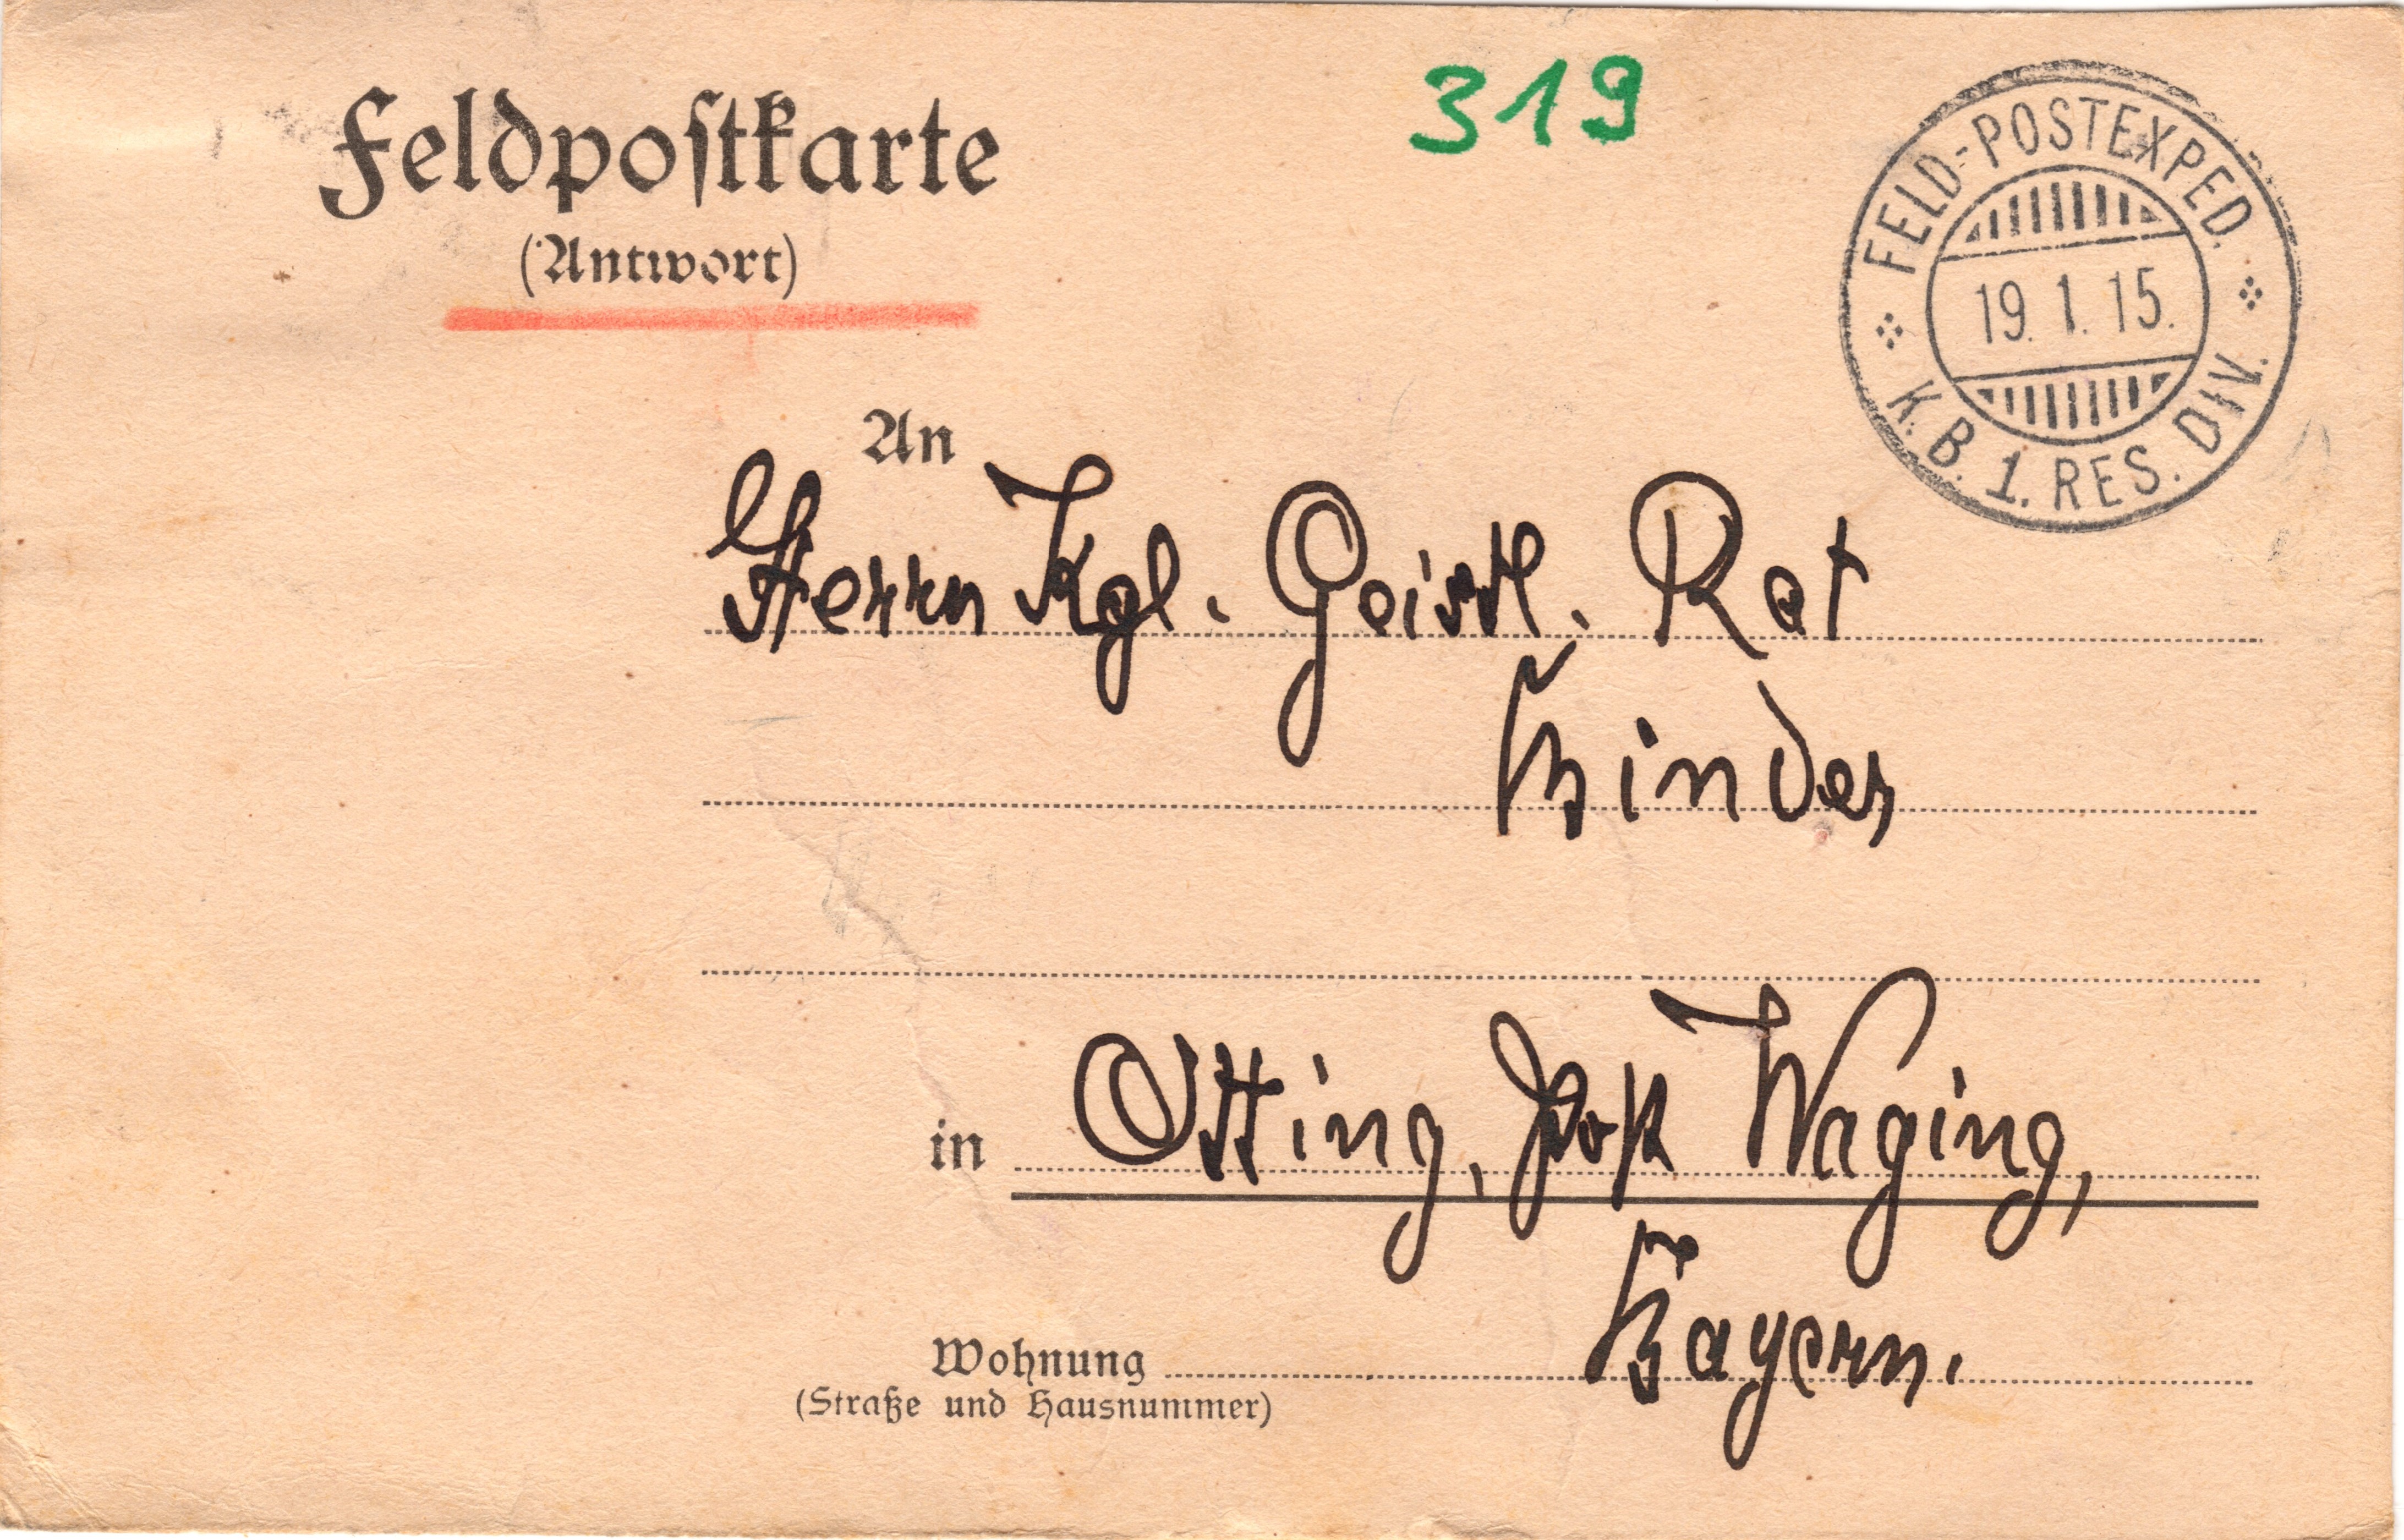 Feldpostkarte
(Antwort)
319
FELD-POSTEXPED.
19. 1. 15.
K. B. 1. RES. DIV.
An
Herrn Kgl. Geistl. Rat
Binder
in Otting, Post Waging,
Bayern.
Wohnung
(Straße und Hausnummer)